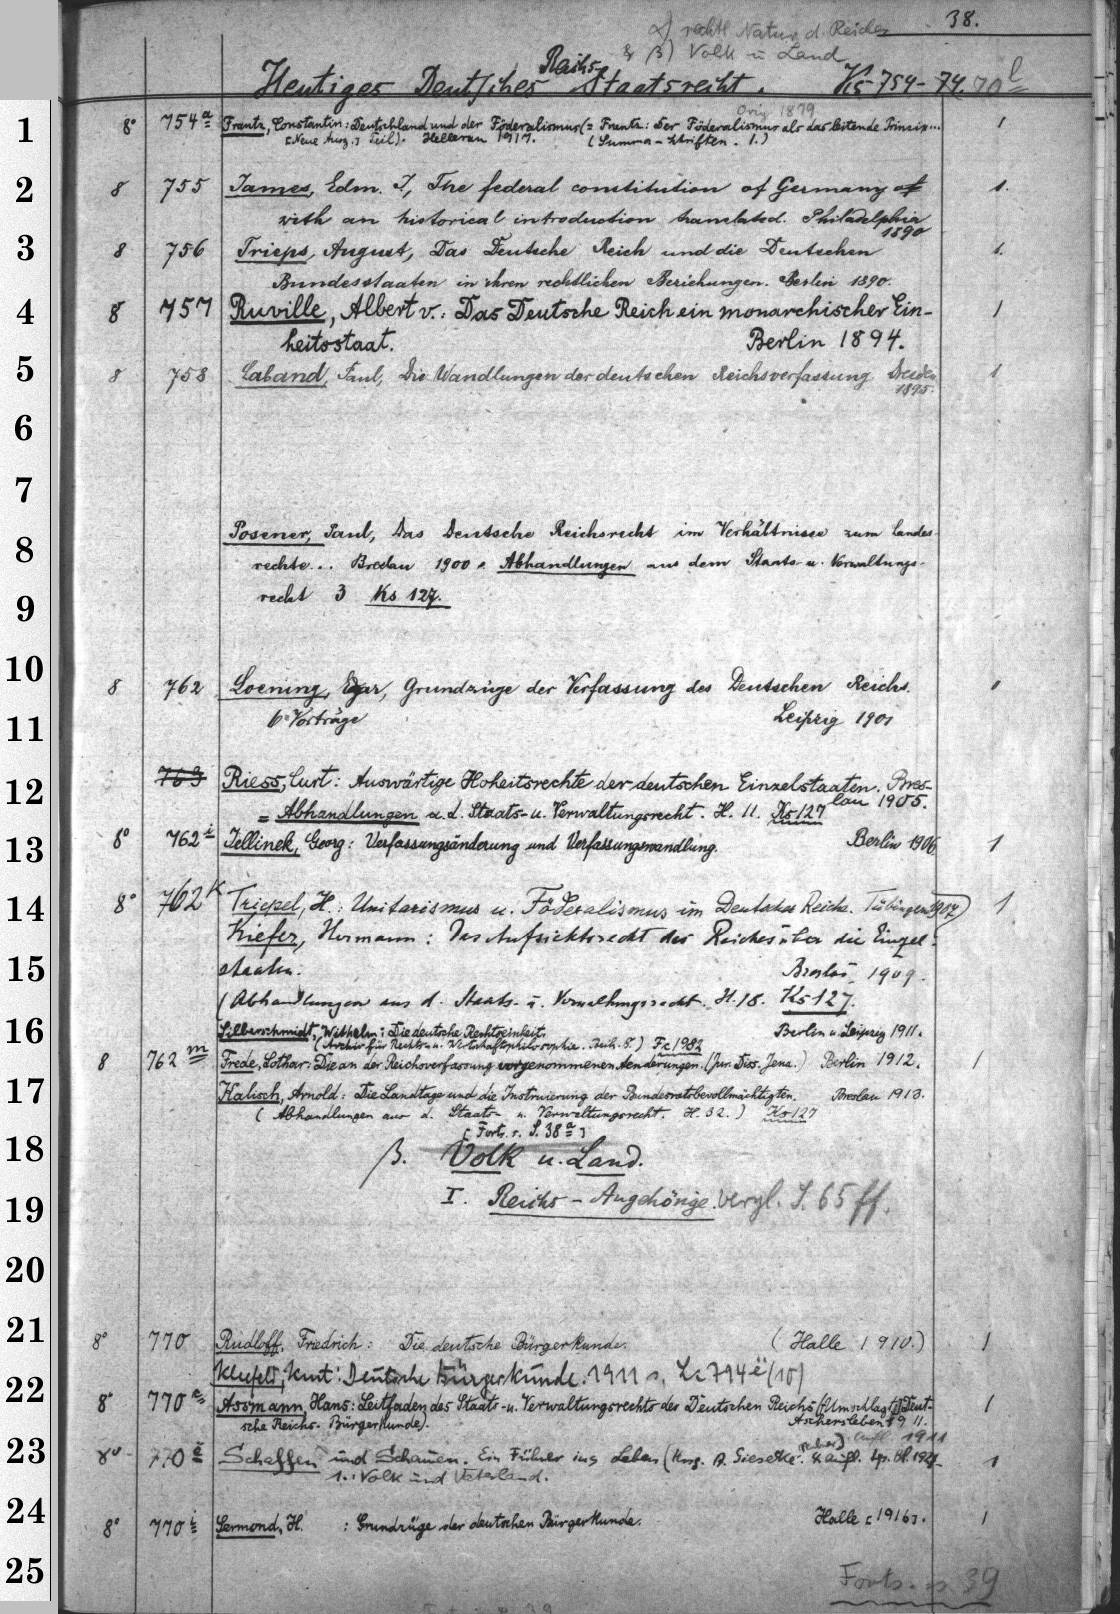 38.
α) rechtl Natur d. Reiches
& β) Volk u Land
Heutiges Deutsches Reichs- Staatsrecht. Ks 754-74. 70l
1
Orig 1879
8° 754a Frantz, Constantin: Deutschland und der Föderalismus (= Frantz: Der Föderalismus als das leitende Prinzip... 1
[Neue Ausg.] Teil). Hellerau 1917. (Summa-Schriften. 1.)
2
8 755 James, Edm. J, The federal constitution of Germany of 1.
with an historical introduction translated. Philadelphia
1890
3
8 756 Trieps, August, Das Deutsche Reich und die Deutschen 1.
Bundesstaaten in ihren rechtlichen Beziehungen. Berlin 1890.
4
8 757 Ruville, Albert v.: Das Deutsche Reich ein monarchischer Ein- 1
heitsstaat. Berlin 1894.
5
8 758 Laband, Paul, Die Wandlungen der deutschen Reichsverfassung Dresden 1
1895.
6
7
Posener, Paul, Das Deutsche Reichsrecht im Verhältnisse zum Landes-
8
rechte... Breslau 1900 = Abhandlungen aus dem Staats- u. Verwaltungs-
9
recht 3 Ks 127.
10
8 762 Loening, Edgar, Grundzüge der Verfassung des Deutschen Reichs.
11
6 Vorträge Leipzig 1901
12
763 Riess, Curt: Auswärtige Hoheitsrechte der deutschen Einzelstaaten. Bres-
lau 1905.
= Abhandlungen a. d. Staats- u. Verwaltungsrecht. H. 11. Ks 127
13
8° 762i Jellinek, Georg: Verfassungsänderung und Verfassungswandlung. Berlin 1906 1
14
8° 762k Triepel, H.: Unitarismus u. Föderalismus im Deutschen Reiche. Tübingen 1907) 1
Kiefer, Hermann: Das Aufsichtsrecht des Reiches über die Einzel-
15
staaten. Breslau 1909.
(Abhandlungen aus d. Staats- u. Verwaltungsrecht. H. 18. Ks 127.
16
Silberschmidt, Wilhelm: Die deutsche Rechtseinheit. Berlin u. Leipzig 1911.
(Archiv für Rechts- u. Wirtschaftsphilosophie. Beih. 8.) Fc 1982
8 762m Frede, Lothar: Die an der Reichsverfassung vorgenommenen Aenderungen. (Jur. Diss. Jena.) Berlin 1912. 1
17
Kalisch, Arnold: Die Landtage und die Instruierung der Bundesratsbevollmächtigten. Breslau 1913.
(Abhandlungen aus d. Staats- u. Verwaltungsrecht. H. 32.) Ks 127
[Forts. s. S. 38a]
18
β. Volk u. Land.
19
I. Reichs-Angehörige. vergl. S. 65 ff.
20
21
8° 770 Rudloff, Friedrich: Die deutsche Bürgerkunde. (Halle 1910.) 1
Kurt: Deutsche Bürgerkunde. 1911 s. (10)
22
8° 770e Assmann, Hans: Leitfaden des Staats- u. Verwaltungsrechts des Deutschen Reichs (Umschlagt.: Deut- 1
sche Reichs-Bürgerkunde). Aschersleben 1911.
23
8° 770 Schaffen und Schauen. Ein Führer ins Leben (Hrsg. A. Giesecke. 4. Aufl. Lpz. Bl. 1
1.: Volk und Vaterland.
24
8° 770i Sermond, H. : Grundzüge der deutschen Bürgerkunde. Halle [1916]. 1
25
Forts. s 39